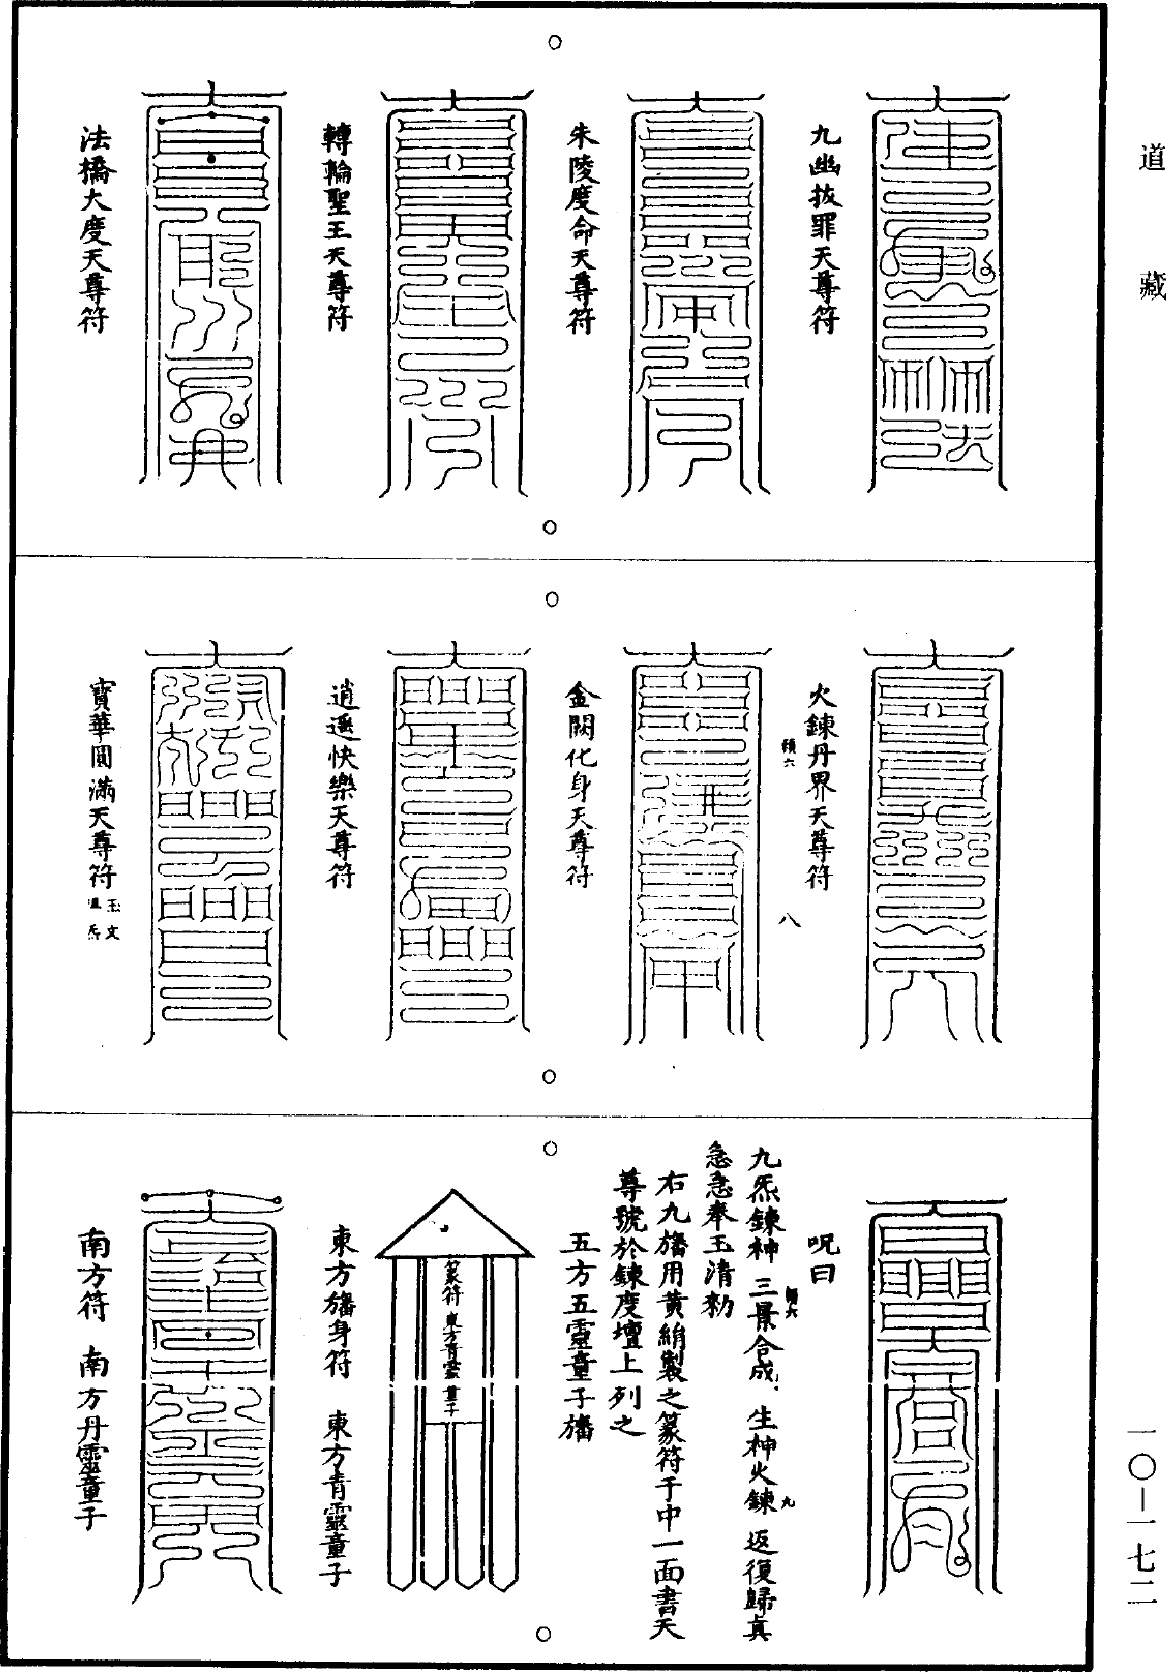 道藏
九幽拔罪天尊符
朱陵度命天尊符
轉輪聖王天尊符
法橋大度天尊符
火鍊丹界天尊符
八
金闕化身天尊符
逍遥快樂天尊符
寳華圓滿天尊符
呪曰
九炁鍊神三景合成生神火鍊返復歸真
九
急急奉玉清勑
右九旛用黃絹製之篆符于中一面書天
尊號於鍊度壇上列之
五方五靈童子旛
篆符東方青靈童子
東方旛身符　東方青靈童子
南方符　南方丹靈童子
一〇—一七二